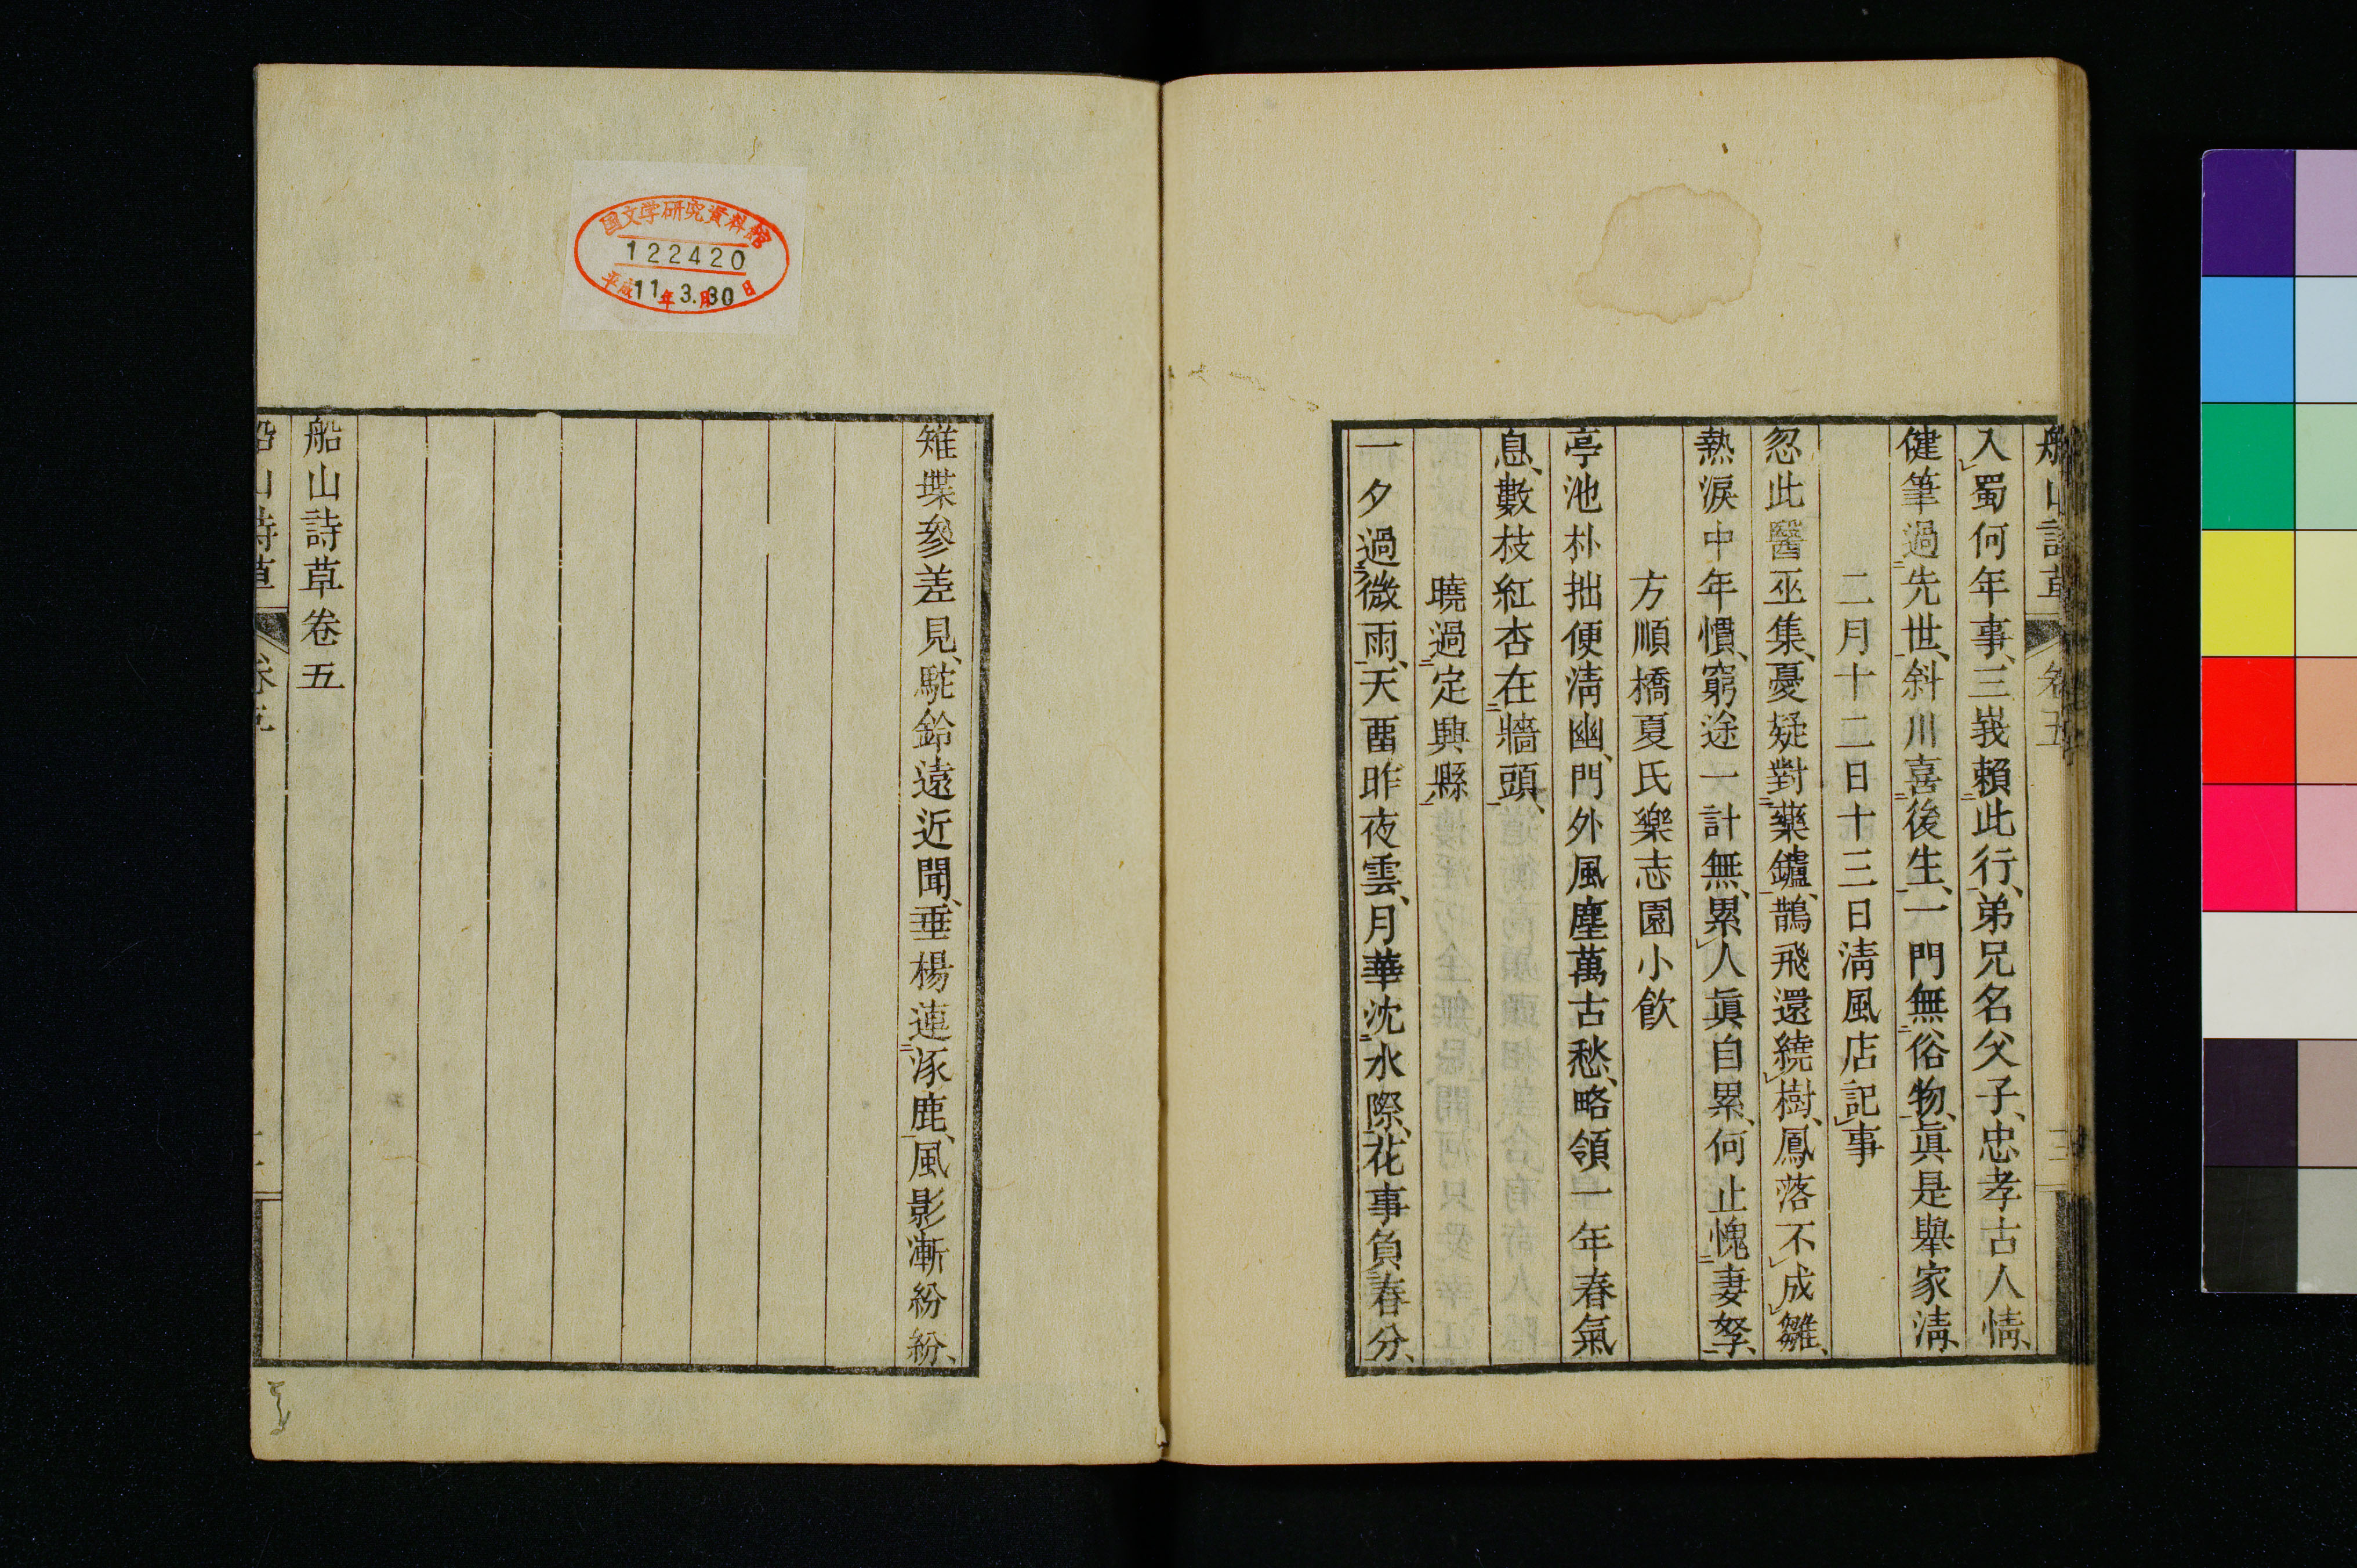 船山詩草 卷五
入蜀何年事、三峩賴此行、弟兄名父子、忠孝古人情、
健筆過先世、斜川喜後生、一門無俗物、眞是舉家淸、
二月十二日十三日淸風店記事
忽此醫巫集、憂疑對藥鑪、鵲飛還繞樹、鳳落不成雛、
熱淚中年慣、窮途一計無、累人眞自累、何止愧妻孥、
方順橋夏氏樂志園小飮
亭池朴拙便淸幽、門外風塵萬古愁、略領一年春氣
息、數枝紅杏在牆頭、
曉過定興縣
一夕過微雨、天畱昨夜雲、月華沈水際、花事負春分、
国文学研究資料館
122420
平成11年3月30日
雉堞參差見、駝鈴遠近聞、垂楊連涿鹿、風影漸紛紛、
船山詩草卷五
船山詩草